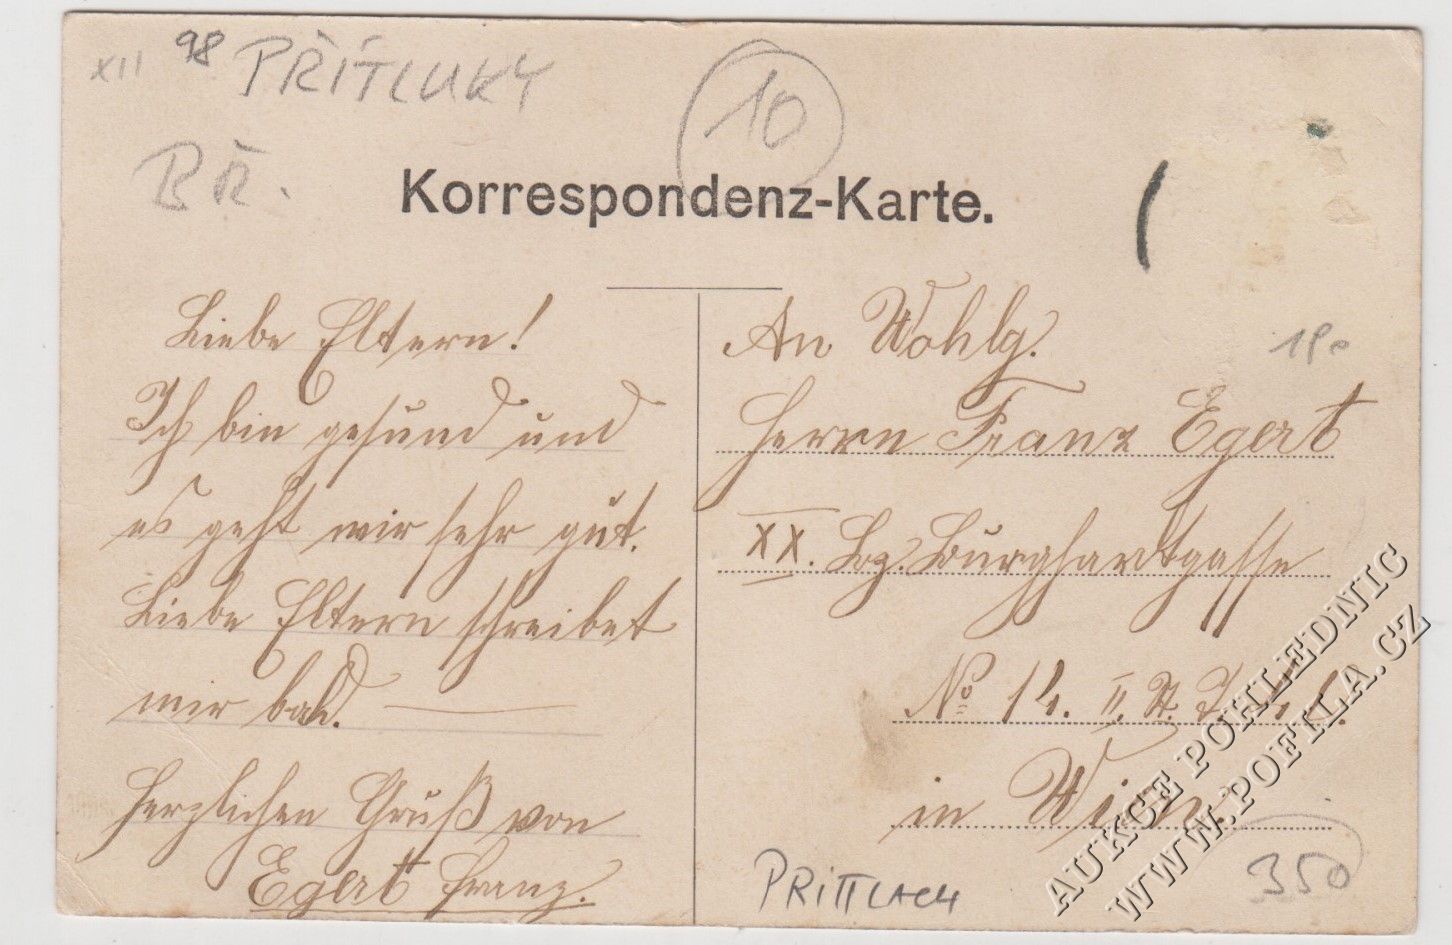 XII 98 PŘÍTLUKY
10
BŘ.
Korrespondenz-Karte.
Liebe Eltern!
Ich bin gesund und
es geht mir sehr gut.
Liebe Eltern schreibet
mir bald.
Herzlichen Gruß von
Egert Franz.
An Wohlg.
Herrn Franz Egert
XX. Bz. Burghartgasse
No II. St. T.
in Wien.
PRITTLACH
350
AUKCE POHLEDNIC
WWW.POFILA.CZ